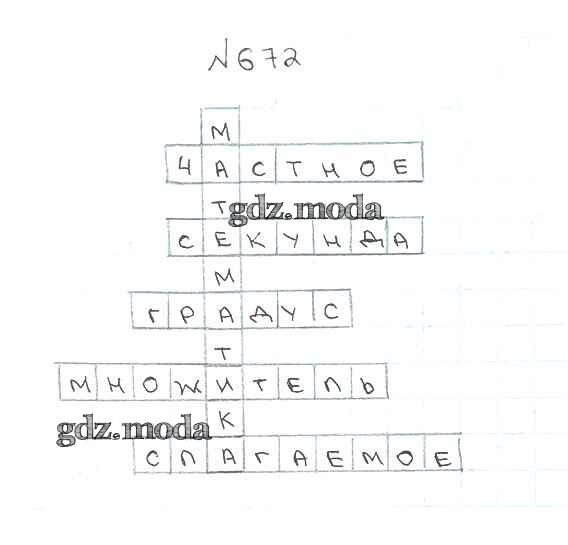 №672
М
ЧАСТНОЕ
Т
gdz.moda
СЕКУНДА
М
ГРАДУС
Т
МНОЖИТЕЛЬ
К
gdz.moda
СЛАГАЕМОЕ